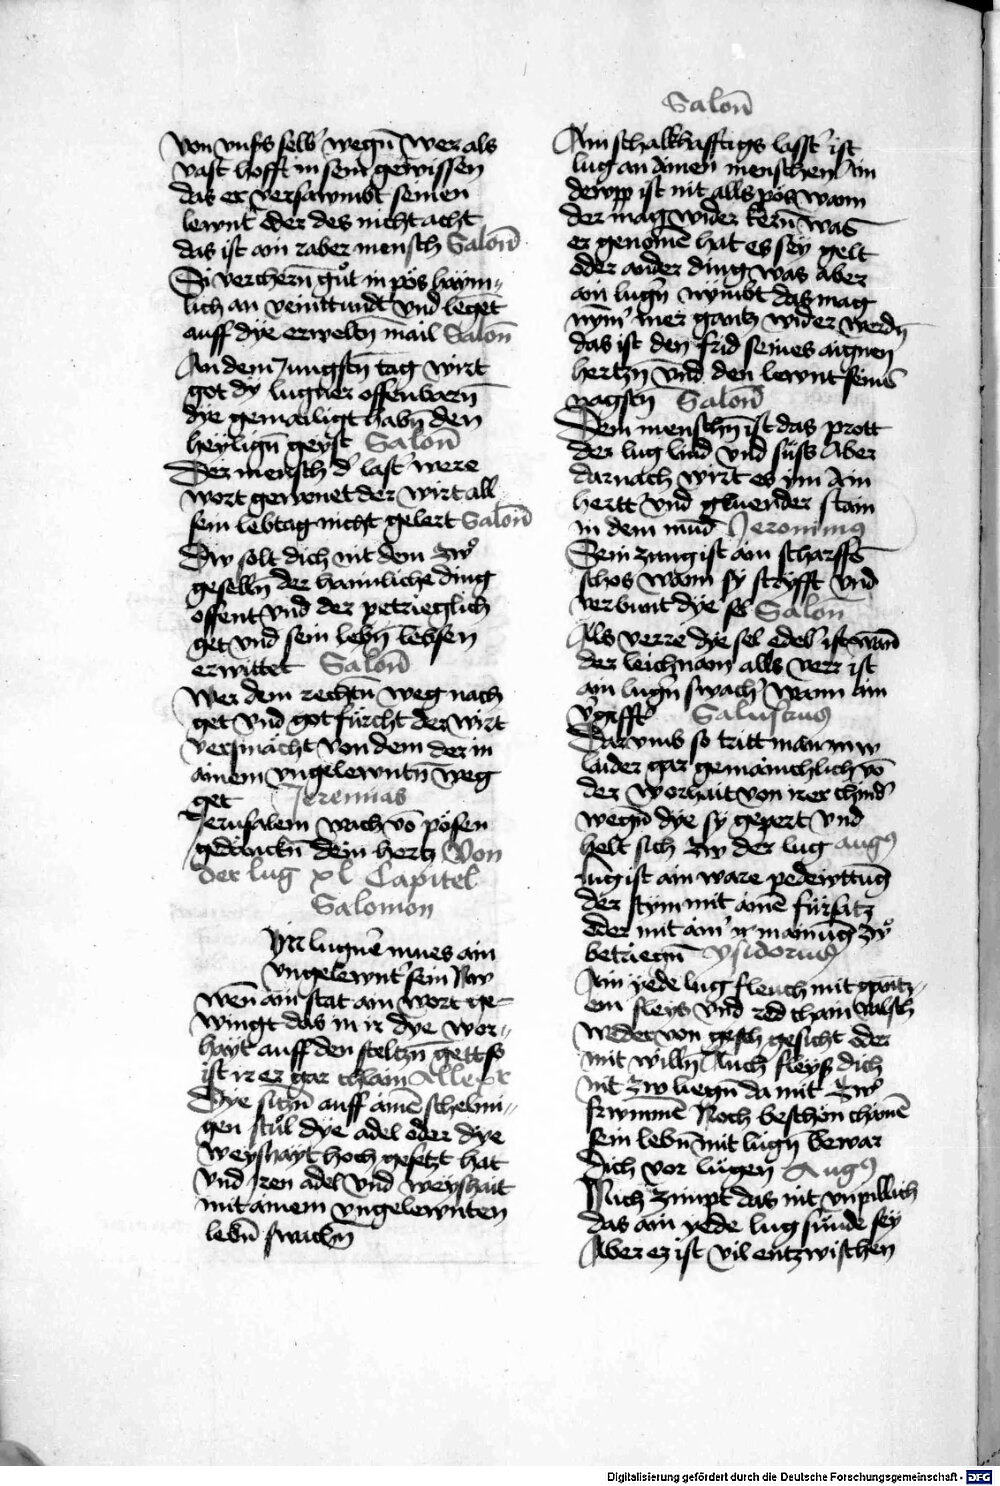 von vnss selb wegn̄ wer als
vast hofft in sein gewissen
das er versawmbt seinen
lewnt oder des nicht acht
das ist ain raber mensch Salon̄
Si verchern̄ gůt in pös haym-
lich an veinttundt vnd leget
auff dye erwelten mail Salon̄
An dem Jungstn̄ tag wirt
got dy lugner offenbarn̄
dye gemailigt habn̄ den
heylign̄ geyst Salon̄
Der mensch d' last' were
wort gewonet der wirt all
sein lebtag nicht gelert Salon̄
Dw solt dich nit dem zw
geselln̄ der haimliche ding
offent vnd der petrieglich
get vnd sein lebn̄ lebsen
erwittet Salon̄
Wer dem rechtn̄ weg nach
get vnd got fürcht der wirt
versmächt von dem der in
ainem vngelewntn̄ weg
get Jeremias
Jerusalem wach vō pösen
gedanckn̄ dein hertz Von
der lug xl Capitel
Salomon
Yn lugnē mues ain
vngelewnt' sein Nw
wen̄ ain stat ain wort ge-
wingt das in ir dye wor-
hayt auff den steltzn̄ gett so
ist ir er gar chlain Allexr
Dye sitzn̄ auff ainē schelmi-
gen stůl dye adel oder dye
weyshayt hoch gesetzt hat
vnd Iren adel vnd weyshait
mit ainem vngelewnten
lebn̄ swachn̄
Salon̄
Ain schalkhafftigs last' ist
lug an ainen menschen Ain
dewpp ist nit alls pös wann
der mag wider kern̄ was
er genomē hat es sey gelt
oder ander ding was Aber
ain lugn̄ nymbt das mag
nym' mer gantz wider werdn̄
das ist den frid seines aignen
hertzn̄ vnd den lewnt seinē
nagsten Salon̄
Dem menschn̄ ist das prott
der lug lind vnd süss Aber
darnach wirt es im Ain
hertt vnd gluender stain
in dem mud Jeronimus
Sein zung ist ain scharffē
schos wann sy stryfft vnd
verbunt dye sel Salon̄
Als verre dye sel edel' ist wan̄
der leichnam alls verr ist
ain lugn̄ swach' wann Ain
Salustius
Darvmb so tritt man nw
laider gar gemainchlich vō
der worhait von irer chind'
wegn̄ dye sy gepert vnd
helt sich zw der lug Augus
Lug ist ain ware pedewttung
der stym mit ainē fürsatz
oder mit ain' ir mainūg zů
betriegn̄ Ysidorus
Ain yede lug fleuch mit gantz-
em fleys vnd red chain valsch
weder von gesch gesicht oder
mit willn̄ Auch fleys dich
nit zw liegn̄ da mit zw
frwmmē Noch beschon chainē
sein lebn̄ mit lugn̄ bewar
Dich vor lügen Augus
Mich zimpt das nit vnpillich
das ain yede lug sünde sey
Aber ez ist vil entzwischen
Digitalisierung gefördert durch die Deutsche Forschungsgemeinschaft - DFG